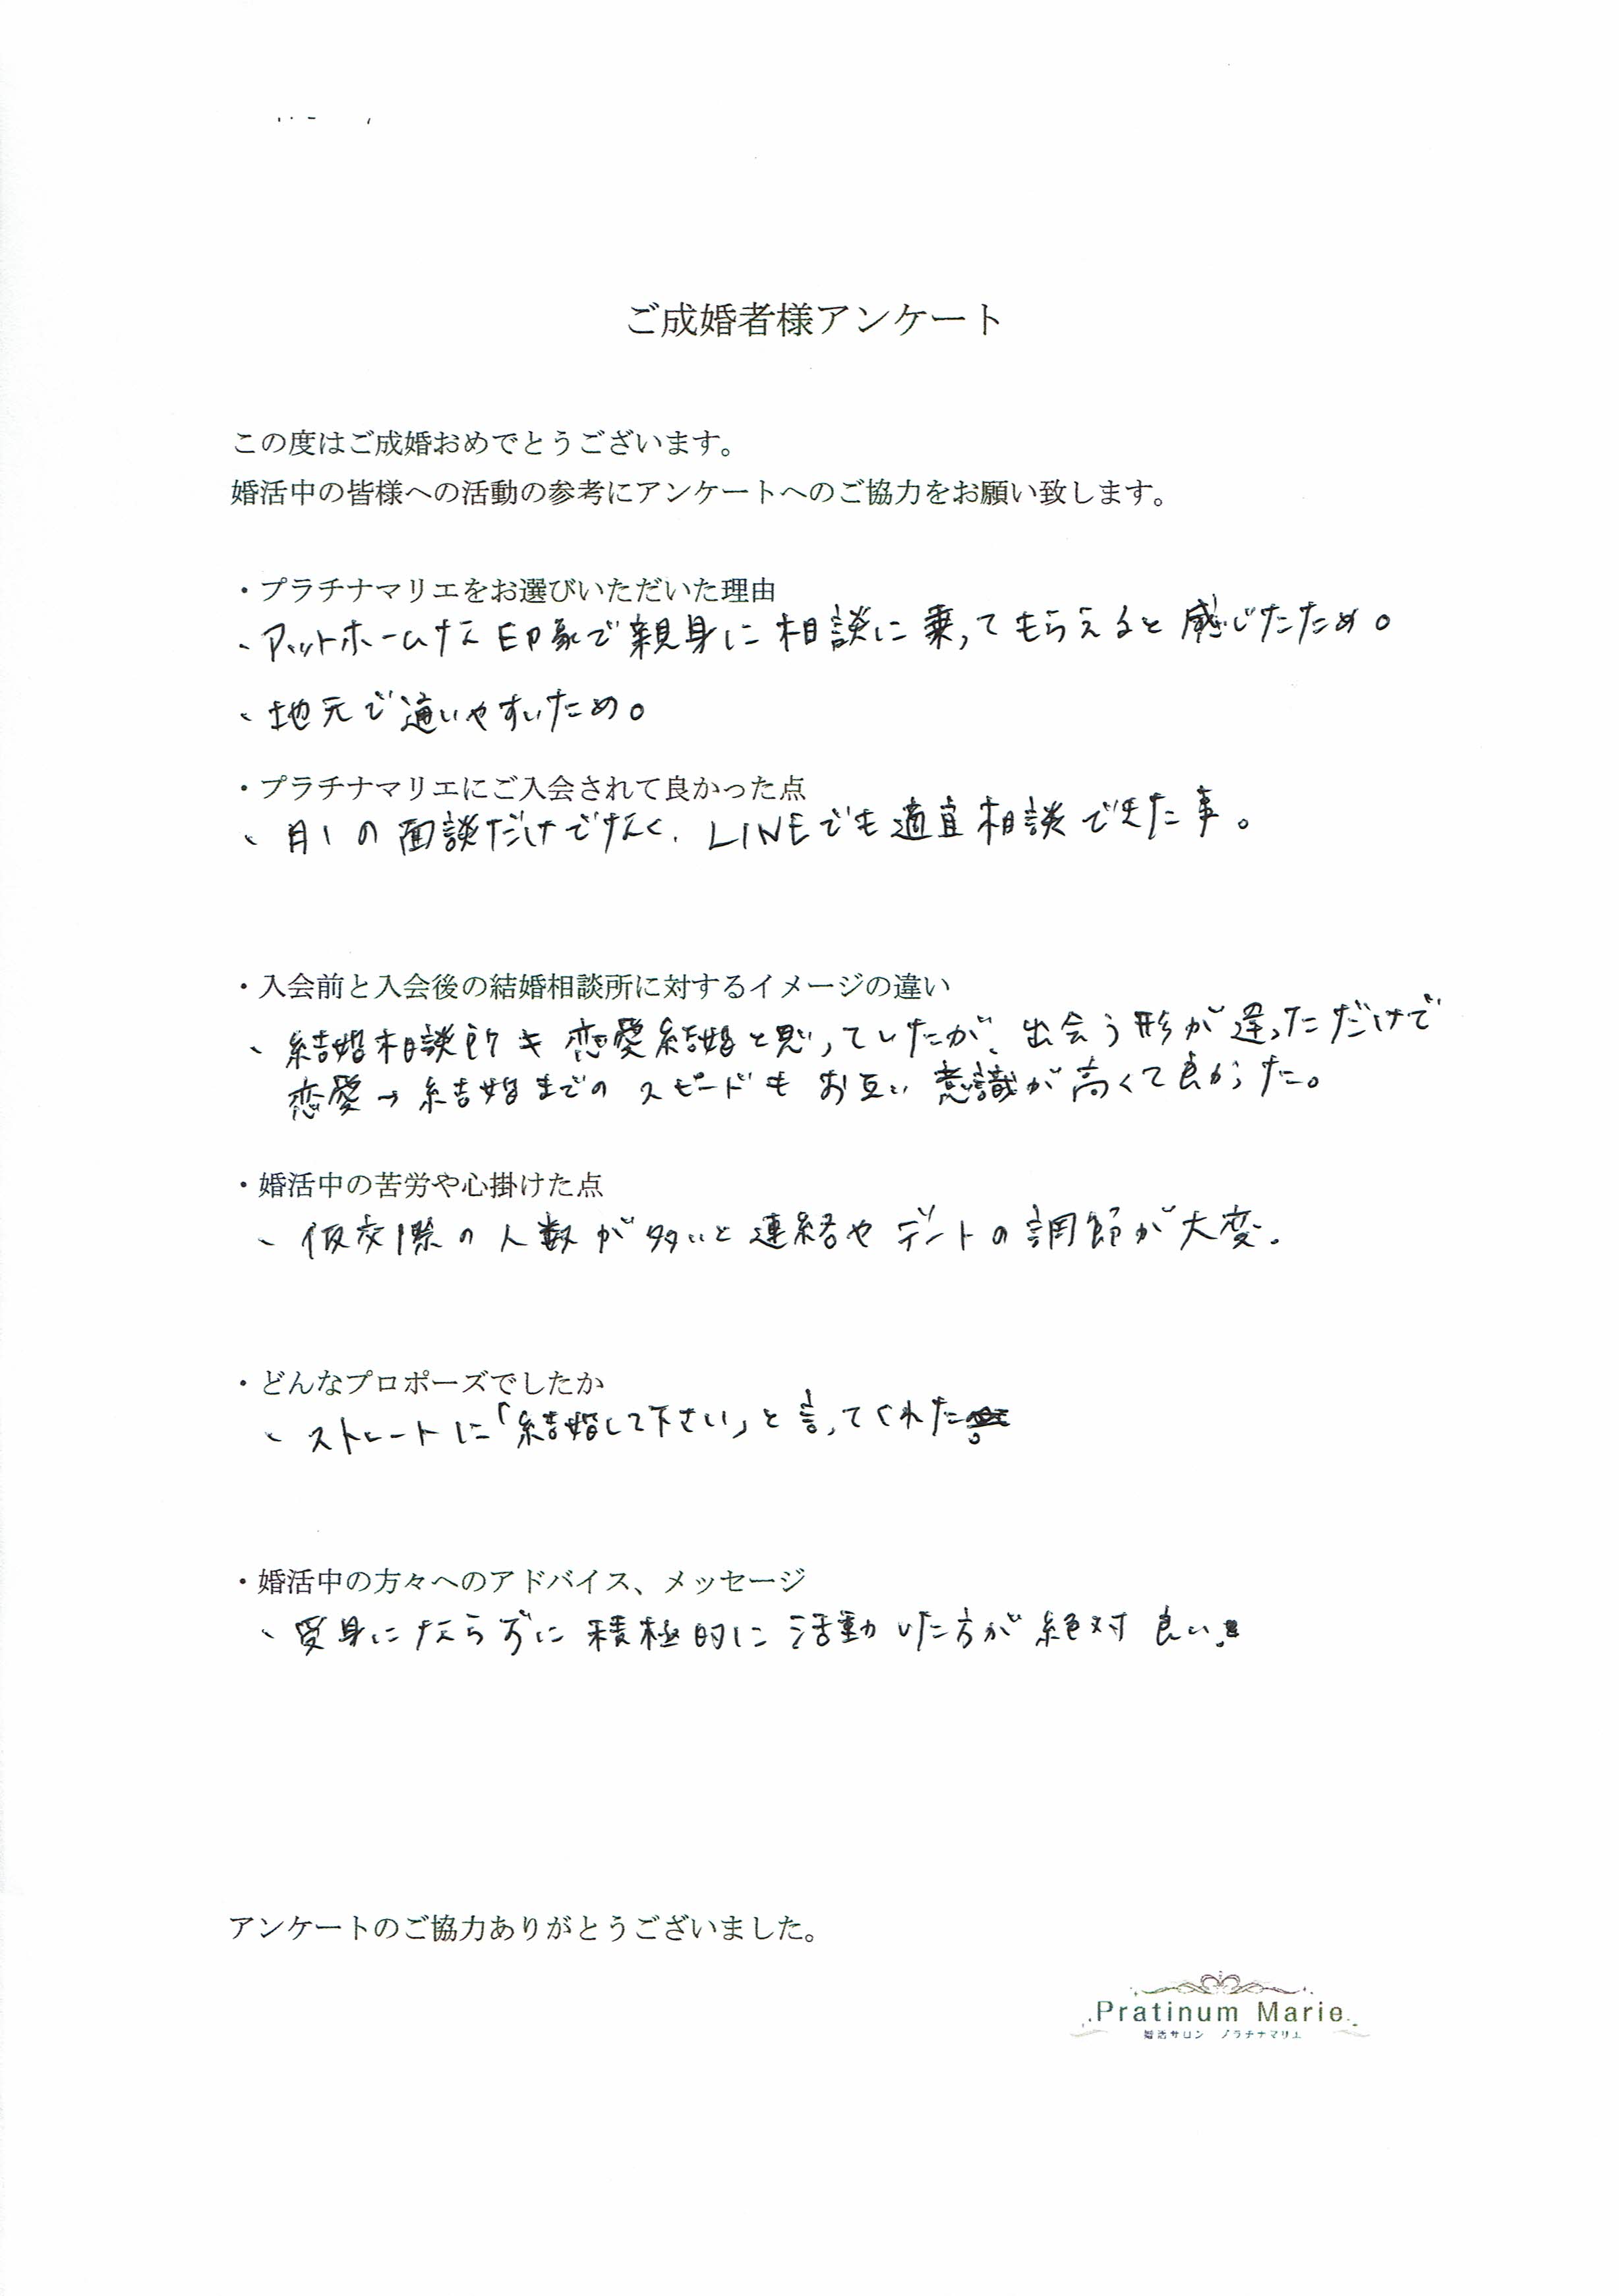 ご成婚者様アンケート
この度はご成婚おめでとうございます。
婚活中の皆様への活動の参考にアンケートへのご協力をお願い致します。
・プラチナマリエをお選びいただいた理由
、アットホームな印象で親身に相談に乗ってもらえると感じたため。
、地元で通いやすいため。
・プラチナマリエにご入会されて良かった点
、月1の面談だけでなく、LINEでも適宜相談できた事。
・入会前と入会後の結婚相談所に対するイメージの違い
、結婚相談所も恋愛結婚と思っていたが、出会う形が違っただけで
恋愛→結婚までのスピードもお互い意識が高くて良かった。
・婚活中の苦労や心掛けた点
、仮交際の人数が多いと連絡やデートの調節が大変。
・どんなプロポーズでしたか
、ストレートに「結婚して下さい」と言ってくれた。
・婚活中の方々へのアドバイス、メッセージ
、受身にならずに積極的に活動した方が絶対良い。
アンケートのご協力ありがとうございました。
Pratinum Marie
婚活サロン プラチナマリエ